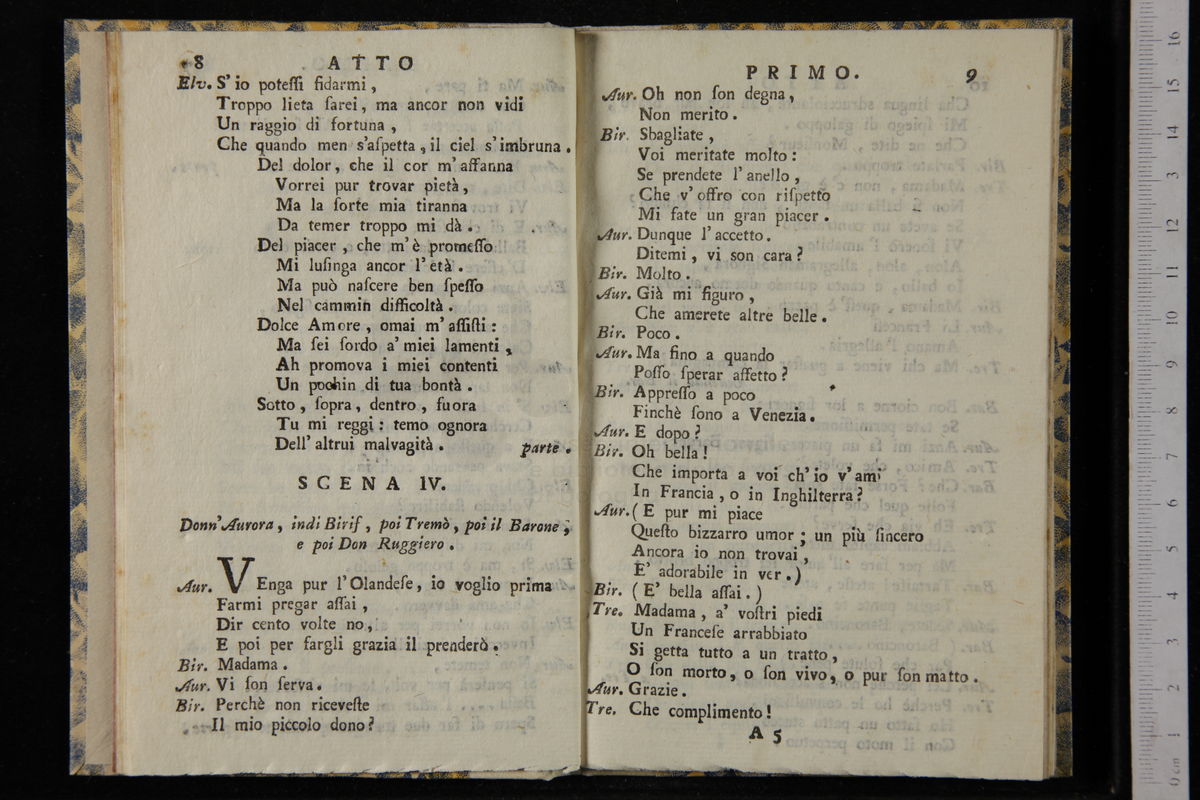 8 ATTO
Elv. S' io poteſſi fidarmi,
Troppo lieta ſarei, ma ancor non vidi
Un raggio di fortuna,
Che quando men s'aſpetta, il ciel s'imbruna.
Del dolor, che il cor m'affanna
Vorrei pur trovar pietà,
Ma la ſorte mia tiranna
Da temer troppo mi dà.
Del piacer, che m'è promeſſo
Mi luſinga ancor l'età.
Ma può naſcere ben ſpeſſo
Nel cammin difficoltà.
Dolce Amore, omai m'aſſiſti:
Ma ſei ſordo a' miei lamenti,
Ah promova i miei contenti
Un pochin di tua bontà.
Sotto, ſopra, dentro, fuora
Tu mi reggi: temo ognora
Dell' altrui malvagità. parte.
SCENA IV.
Donn' Aurora, indi Birif, poi Tremò, poi il Barone,
e poi Don Ruggiero.
Aur. VEnga pur l'Olandeſe, io voglio prima
Farmi pregar aſſai,
Dir cento volte no,
E poi per fargli grazia il prenderò.
Bir. Madama.
Aur. Vi ſon ſerva.
Bir. Perchè non riceveſte
Il mio piccolo dono?
PRIMO. 9
Aur. Oh non ſon degna,
Non merito.
Bir. Sbagliate,
Voi meritate molto:
Se prendete l'anello,
Che v' offro con riſpetto
Mi fate un gran piacer.
Aur. Dunque l'accetto.
Ditemi, vi son cara?
Bir. Molto.
Aur. Già mi figuro,
Che amerete altre belle.
Bir. Poco.
Aur. Ma fino a quando
Poſſo ſperar affetto?
Bir. Appreſſo a poco
Finchè ſono a Venezia.
Aur. E dopo?
Bir. Oh bella!
Che importa a voi ch' io v'ami
In Francia, o in Inghilterra?
Aur. (E pur mi piace
Queſto bizzarro umor; un più ſincero
Ancora io non trovai,
E' adorabile in ver.)
Bir. (E' bella aſſai.)
Tre. Madama, a' voſtri piedi
Un Franceſe arrabbiato
Si getta tutto a un tratto,
O ſon morto, o ſon vivo, o pur ſon matto.
Aur. Grazie.
Tre. Che complimento!
A 5